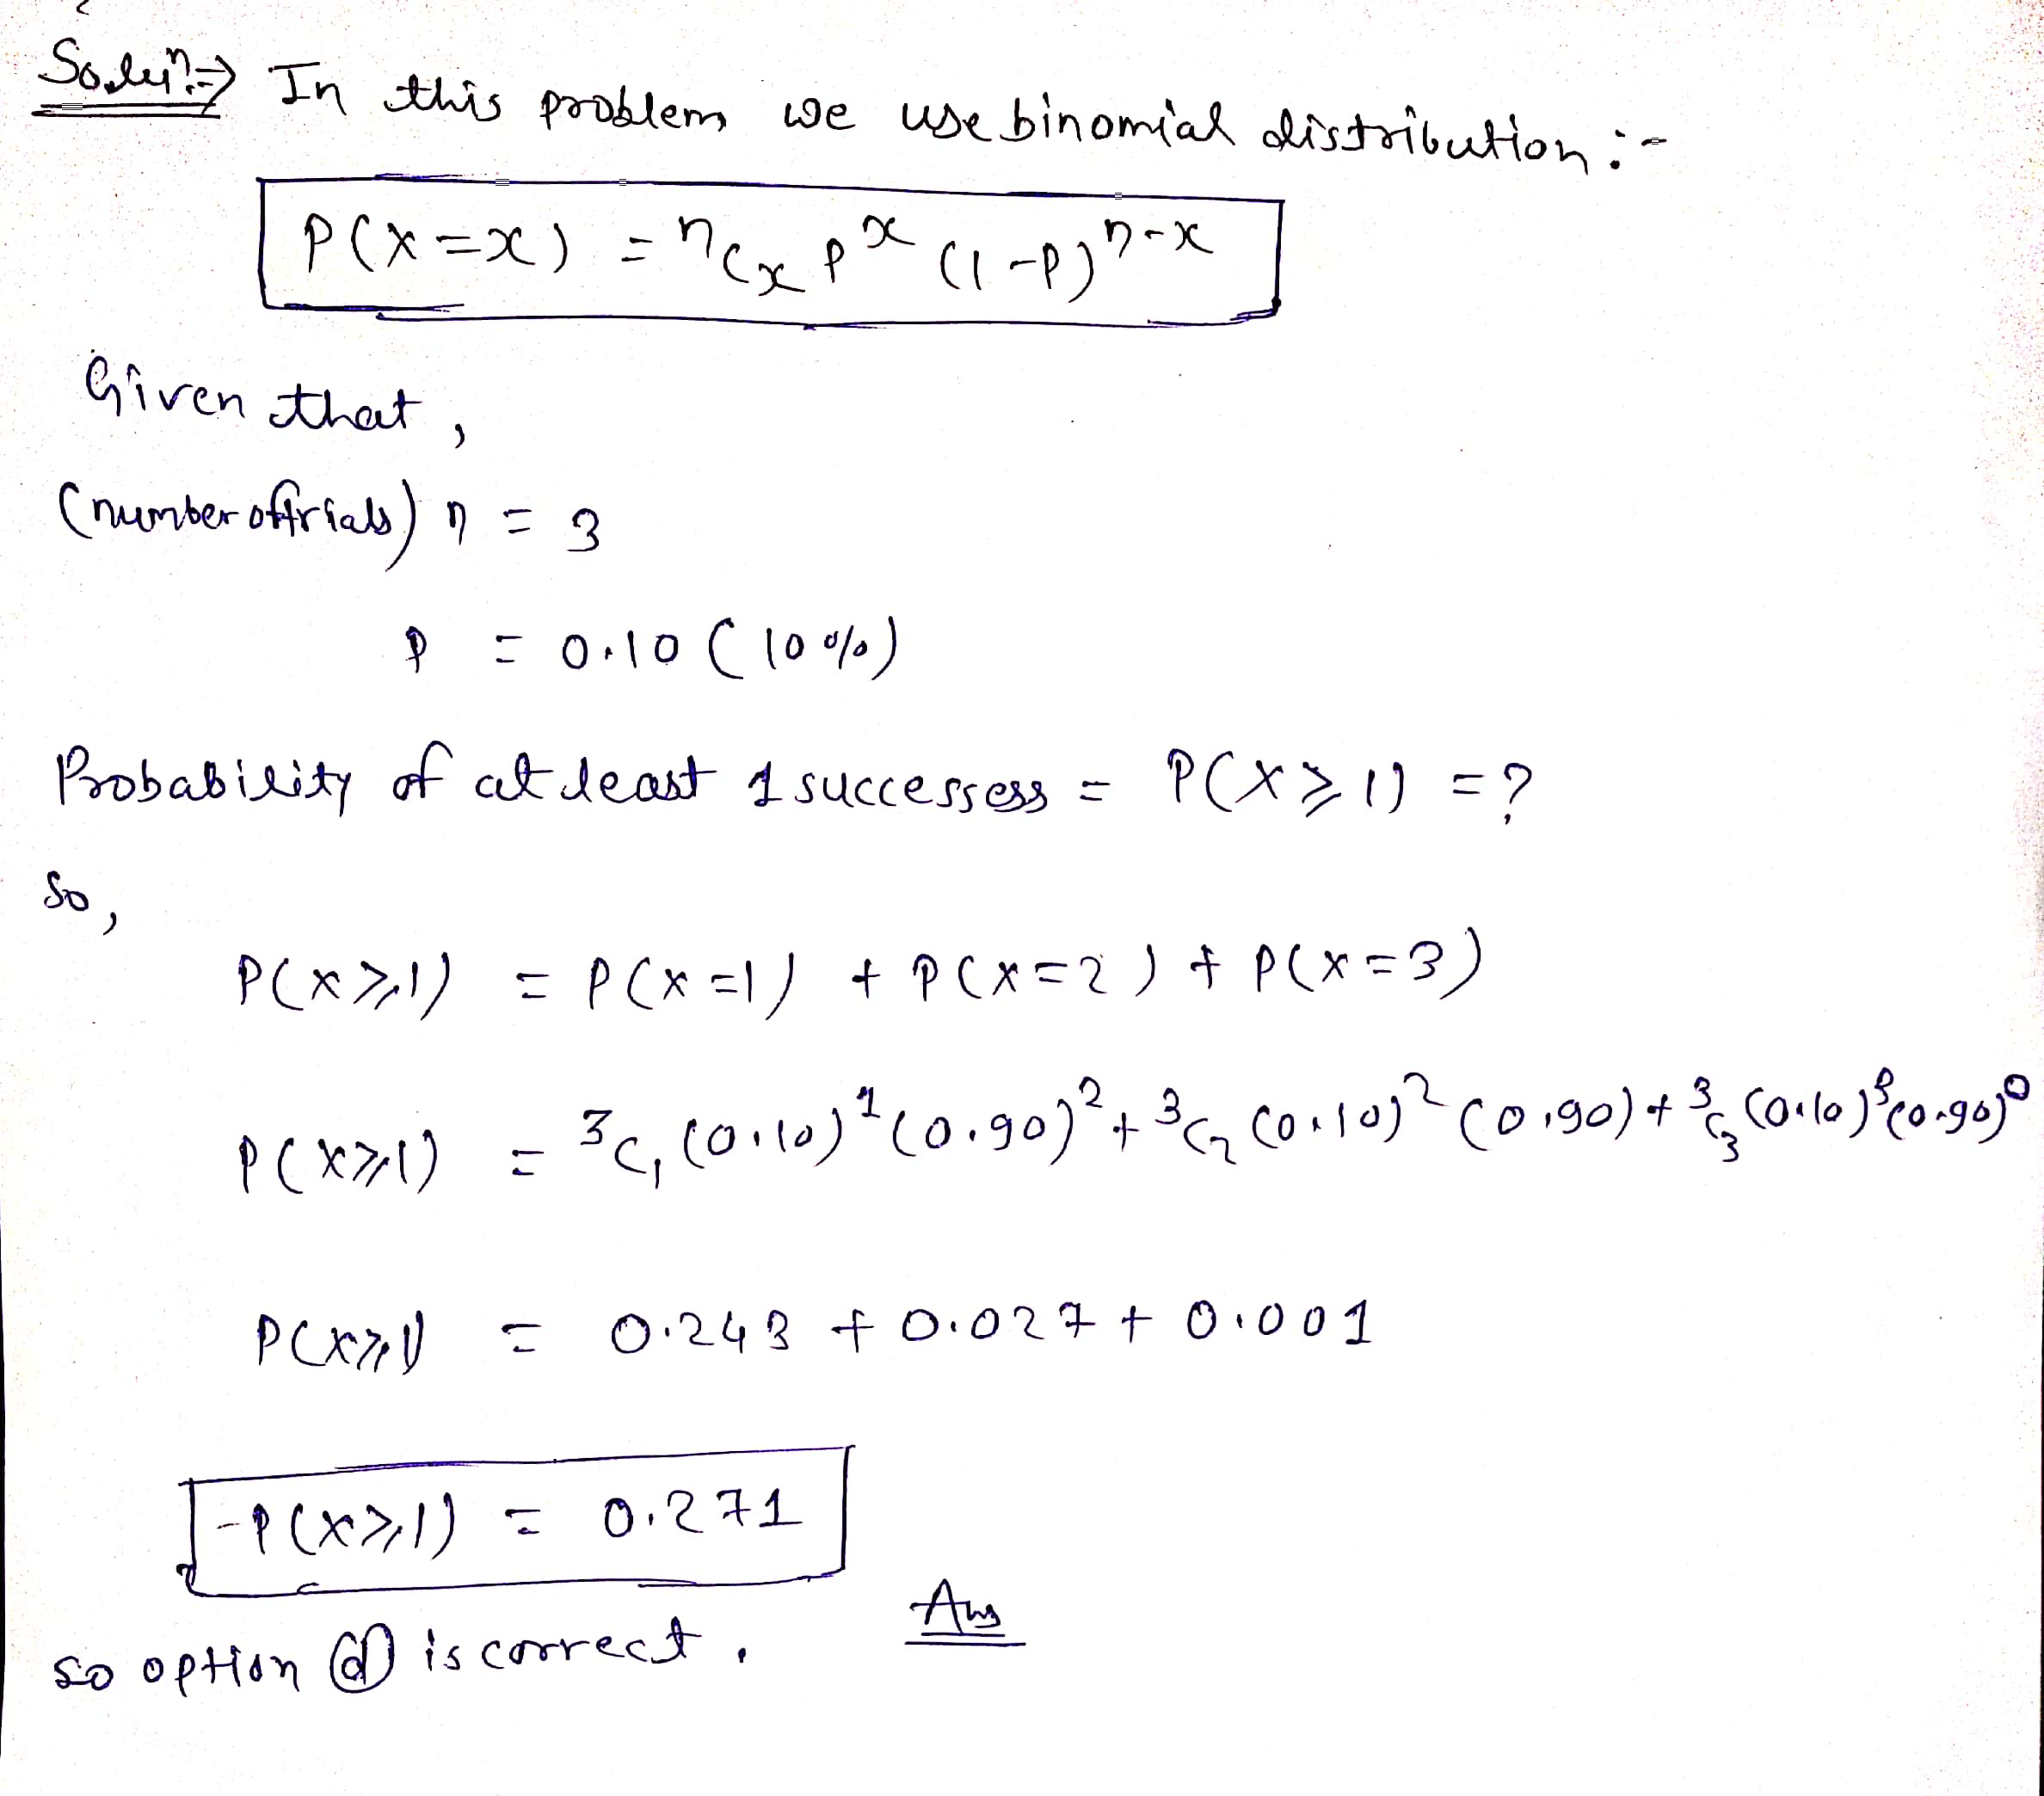 Soluⁿ:⇒ In this problem we use binomial distribution :-
P(X=x) = ⁿCₓ pˣ (1-P)ⁿ⁻ˣ
Given that,
(number of trials) n = 3
p = 0.10 (10%)
Probability of at least 1 successess = P(X⩾1) = ?
So,
P(X⩾1) = P(X=1) + P(X=2) + P(X=3)
P(X⩾1) = ³C₁ (0.10)¹ (0.90)² + ³C₂ (0.10)² (0.90) + ³C₃ (0.10)³ (0.90)⁰
P(X⩾1) = 0.243 + 0.027 + 0.001
-P(X⩾1) = 0.271
so option ⓓ is correct. Ans